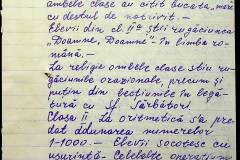 ambele clase au citit bucata, mere
cu destul de notrivit. -
Elevii din cl. IIa știu rugăciunea
"Doamne, Doamne" în limba ro-
mână. -
La religie ambele clase știu ru-
găciunile ocazionale, precum și
puțin din lecțiunile în legă-
tură cu Sf. Sărbători.
Clasa II La aritmetică s'a pre-
dat adunarea numerelor
1-1000. - Elevii socotesc cu
ușurință. - Celelalte operațiuni